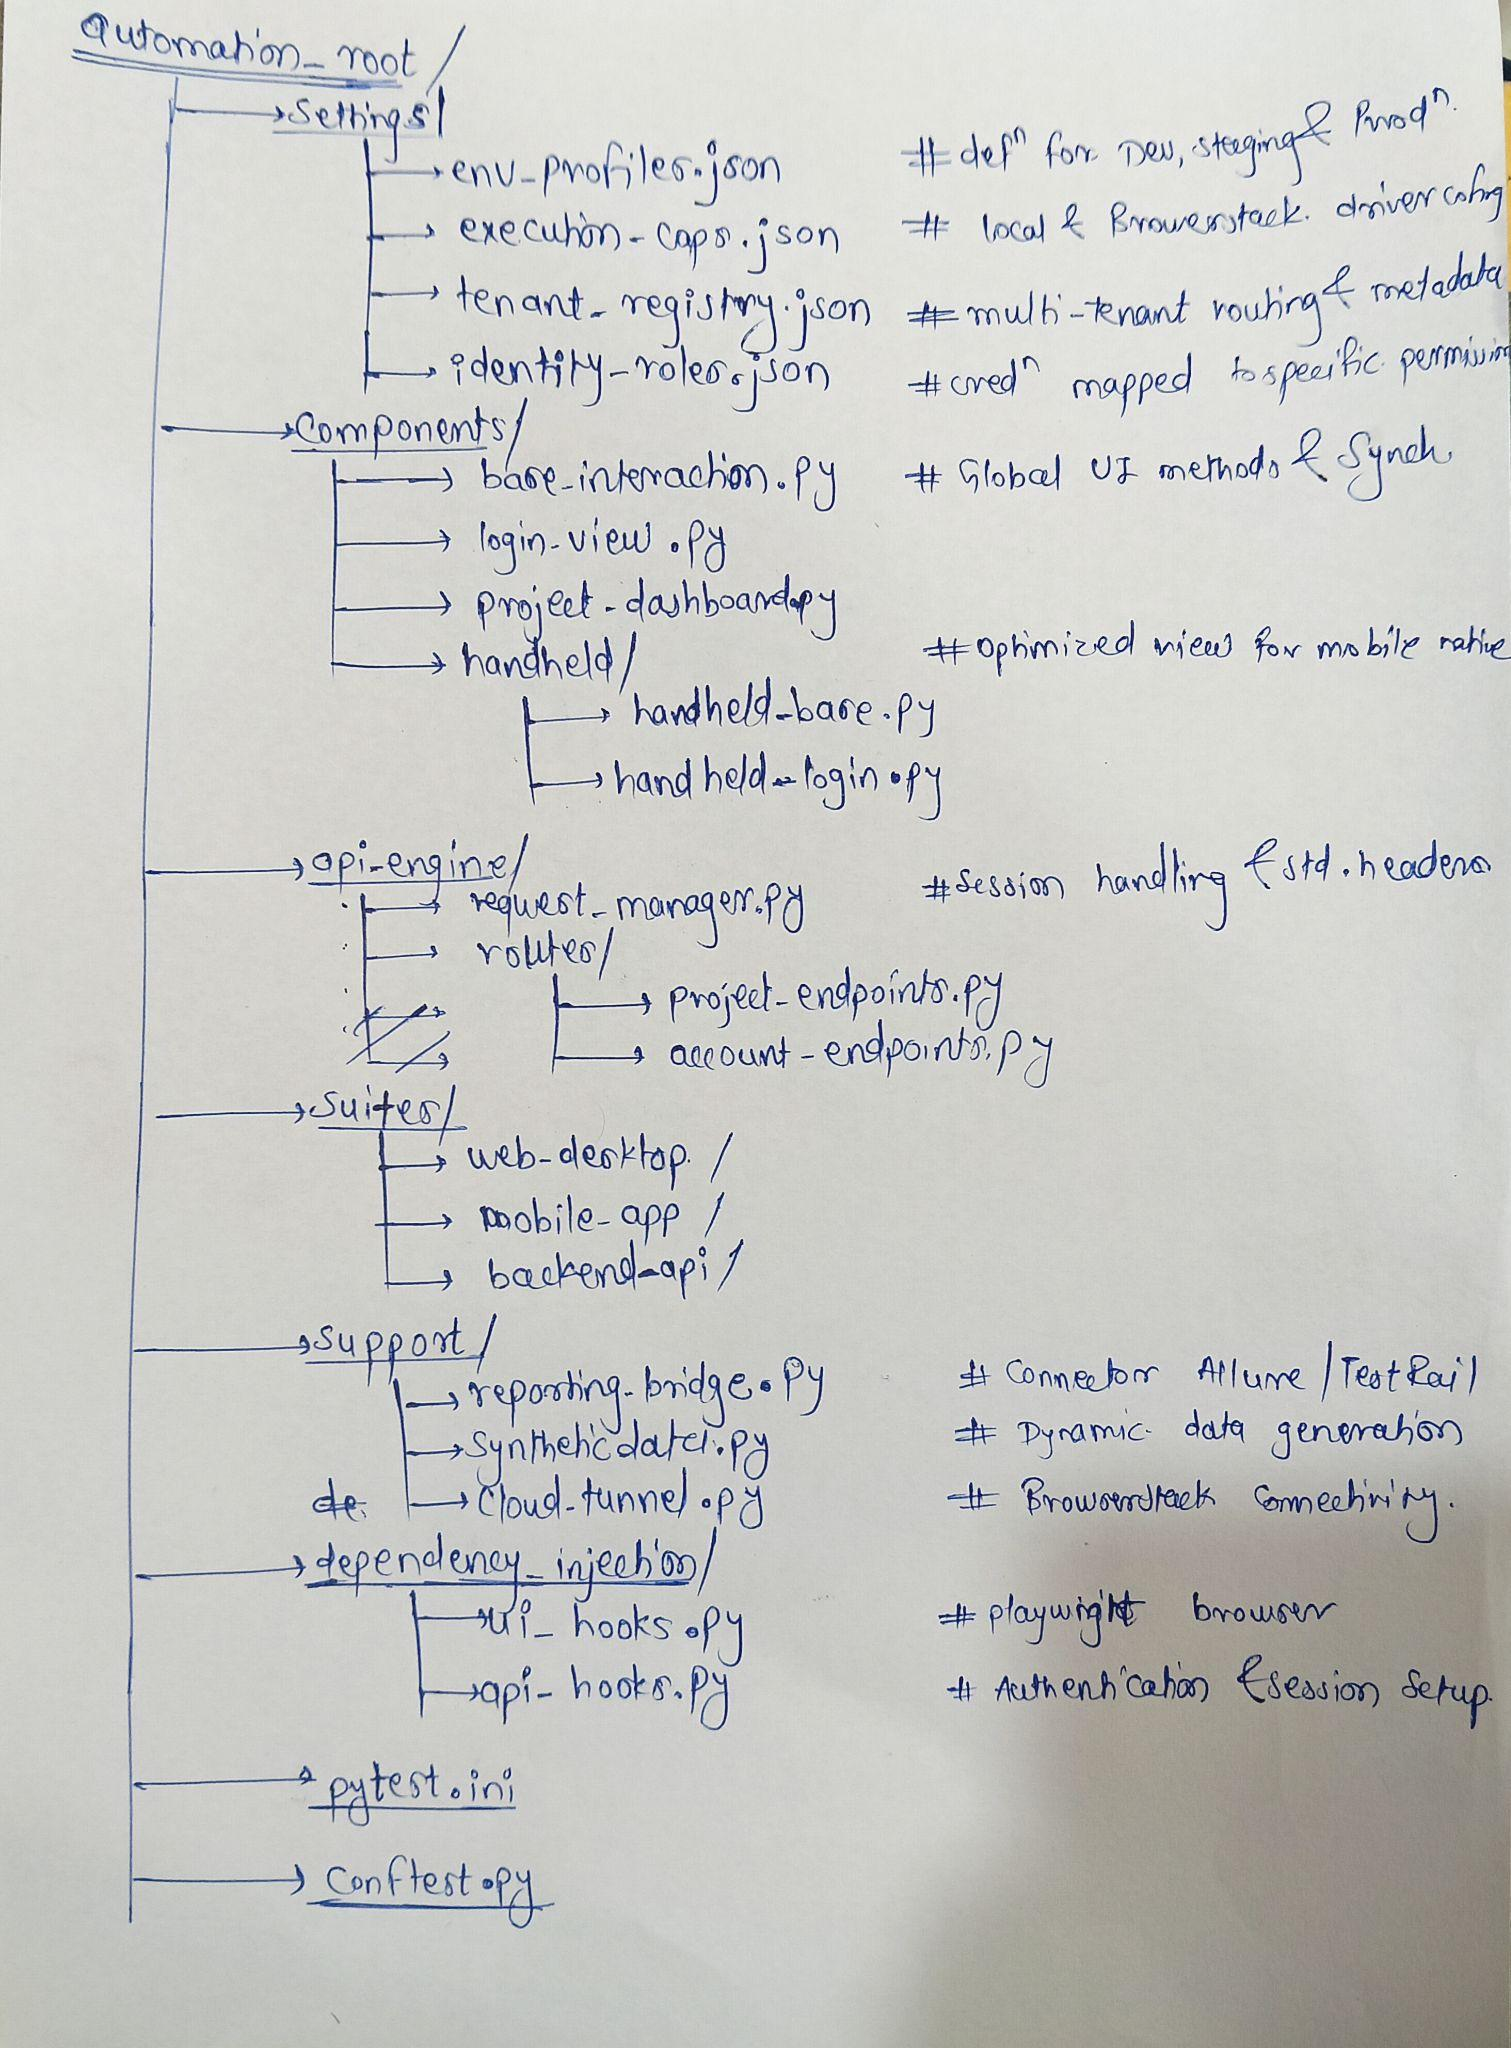 automation_root/
settings/
env-profiles.json # defⁿ for Dev, staging & Prodⁿ.
execution-caps.json # local & Browerstack. driver config
tenant_registry.json # multi-tenant routing & metadata
identity-roles.json # credⁿ mapped to specific permission
components/
base-interaction.py # Global UI methods & Synch
login-view.py
project-dashboard.py
handheld/ # optimized view for mobile native
handheld-base.py
handheld-login.py
api-engine/ # Session handling & std. headers
request_manager.py
routes/
project-endpoints.py
account-endpoints.py
suites/
web-desktop/
mobile-app/
backend-api/
support/
reporting-bridge.py # Connector Allure/TestRail
synthetic data.py # Dynamic data generation
de. cloud-tunnel.py # Browserstack connectivity.
dependency_injection/
ui_hooks.py # playwright browser
api-hooks.py # Authentication & session setup.
pytest.ini
conftest.py